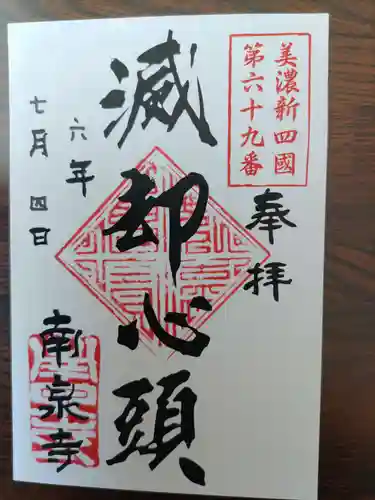 美濃新四國
第六十九番
奉拝
滅却心頭
六年
七月四日
南泉寺